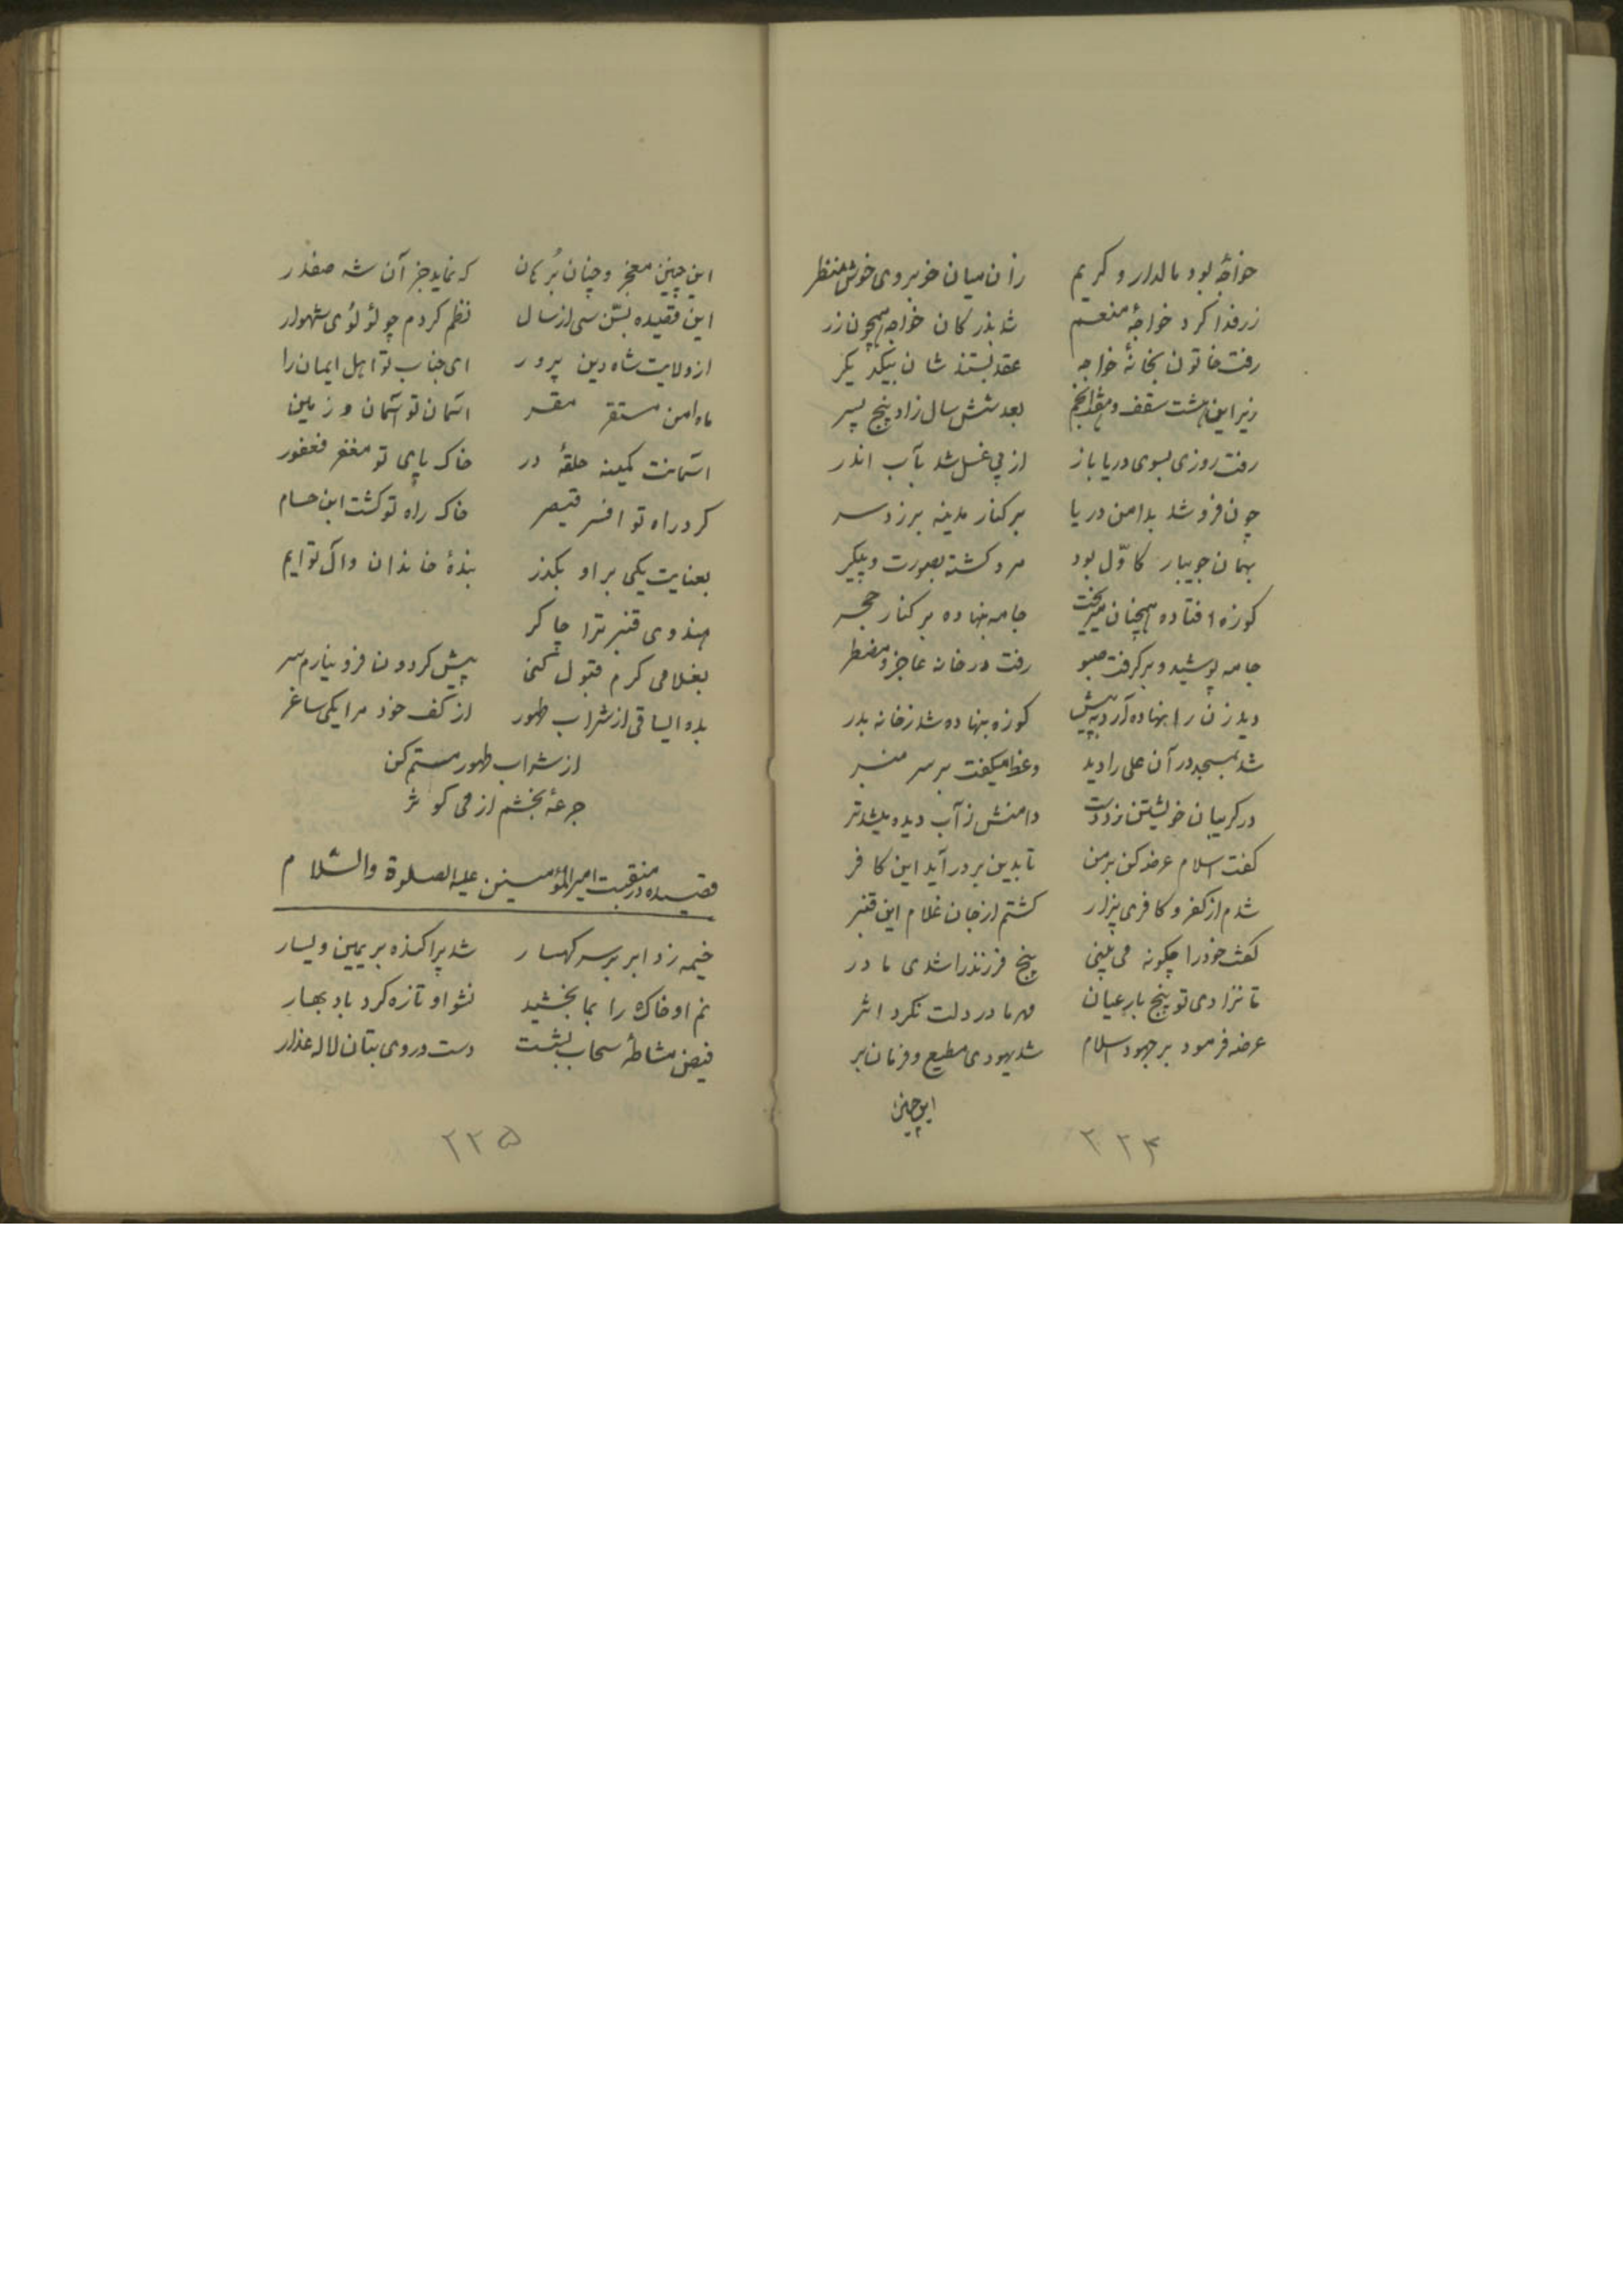 خواجهٔ بود مالدار و کریم زان میان خوبروی خوش منظر
زر فدا کرد خواجهٔ منعم شد بذر کان خواجه همچون زر
رفت خاتون بخانهٔ خواجه عقد بستند شان بیکدیگر
زیر این هشت سقف و هفت انجم بعد شش سال زاد پنج پسر
رفت روزی بسوی دریا باز از پی غسل شد بآب اندر
چون فرو شد بدامن دریا بر کنار مدینه برزد سر
بهمان جویبار کاوّل بود مرد کشته بصورت و پیکر
کوزه افتاده همچنان میریخت جامه بنهاده بر کنار حجر
جامه پوشید و بر گرفت سبو رفت در خانه عاجز و مضطر
دید زن را نهاده آرد به پیش کوزه بنهاده شد ز خانه بدر
شد بمسجد در آن علی را دید وعظ میکفت بر سر منبر
در کریبان خویشتن زد دست دامنش ز آب دیده میشد تر
کفت اسلام عرضه کن بر من تا بدین بر در آید این کافر
شدم از کفر و کافری بیزار کشتم از جان غلام این قنبر
کفت خود را چکونه می بینی پنج فرزند را شدی مادر
تا نزادی تو پنج بار عیان مهر ما در دلت نکرد اثر
عرضه فرمود بر جهود اسلام شد یهودی مطیع و فرمان بر
این چنین
۲۲۴
این چنین معجز و چنان برهان که نماید جز آن شه صفدر
این قصیده بشن سی از سال نظم کردم چو لؤلؤی شهوار
از ولایت شاه دین پرور ای جناب تو اهل ایمان را
ماه امن مستقر مقر آسمان تو آسمان و زمین
آسمانت کمینه حلقهٔ در خاک پای تو مغفر فغفور
کرد راه تو افسر قیصر خاک راه تو کشت ابن حسام
بعنایت یکی بر او بکذر بندهٔ خاندان و آل توایم
هندوی قنبر ترا چاکر
بغلامی کرم قبول کنی پیش کردون فرو نیارم سر
بده الساقی از شراب طهور از کف خود مرا یکی ساغر
از شراب طهور مستم کن
جرعهٔ بخشم از می کوثر
قصیده در منقبت امیرالمؤمنین علیه الصلوة والسّلام
خیمه زد ابر بر سر کهسار شد پراکنده بر یمین و یسار
نم او خاک را بما بخشید نشو او تازه کرد باد بهار
فیض مشاطهٔ سحاب بشست دست در روی بتان لاله عذار
۲۲۵